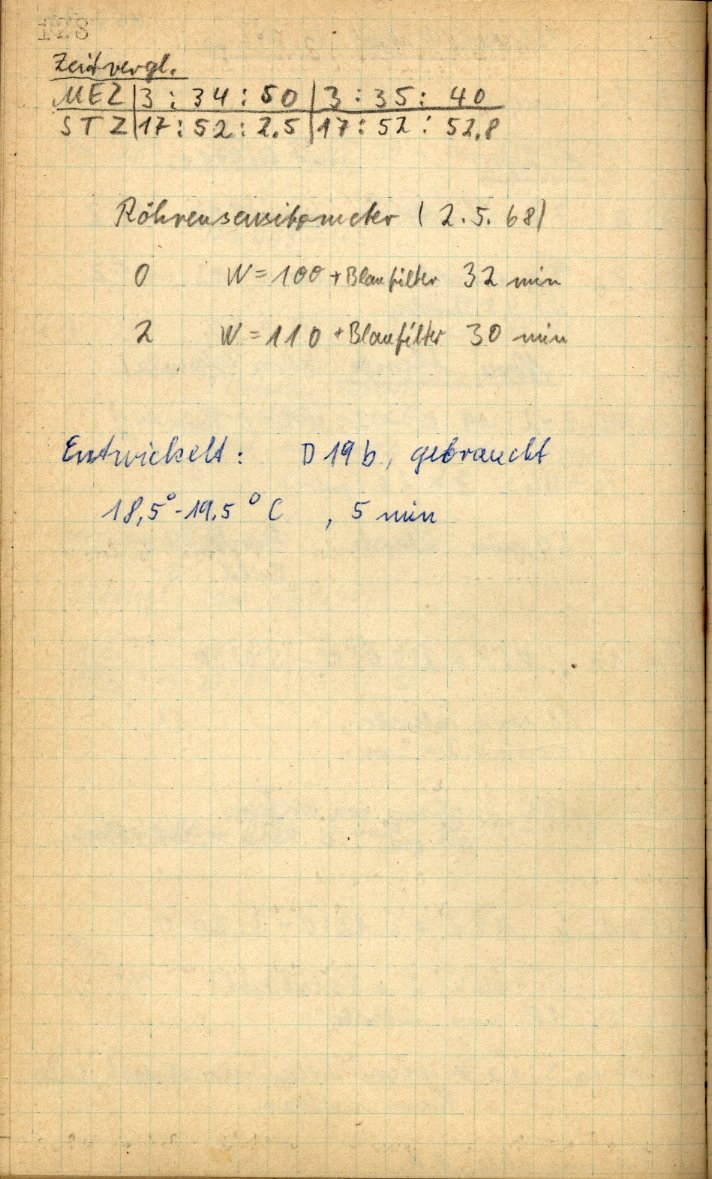 138
Zeitvergl.
MEZ | 3 : 34 : 50 | 3 : 35 : 40
STZ | 17 : 52 : 2.5 | 17 : 52 : 52.8
Röhrensensitometer ( 2.5.68)
0 W = 100 + Blaufilter 32 min
2 W = 110 + Blaufilter 30 min
Entwickelt : D 19 b, gebraucht
18,5° - 19.5° C , 5 min